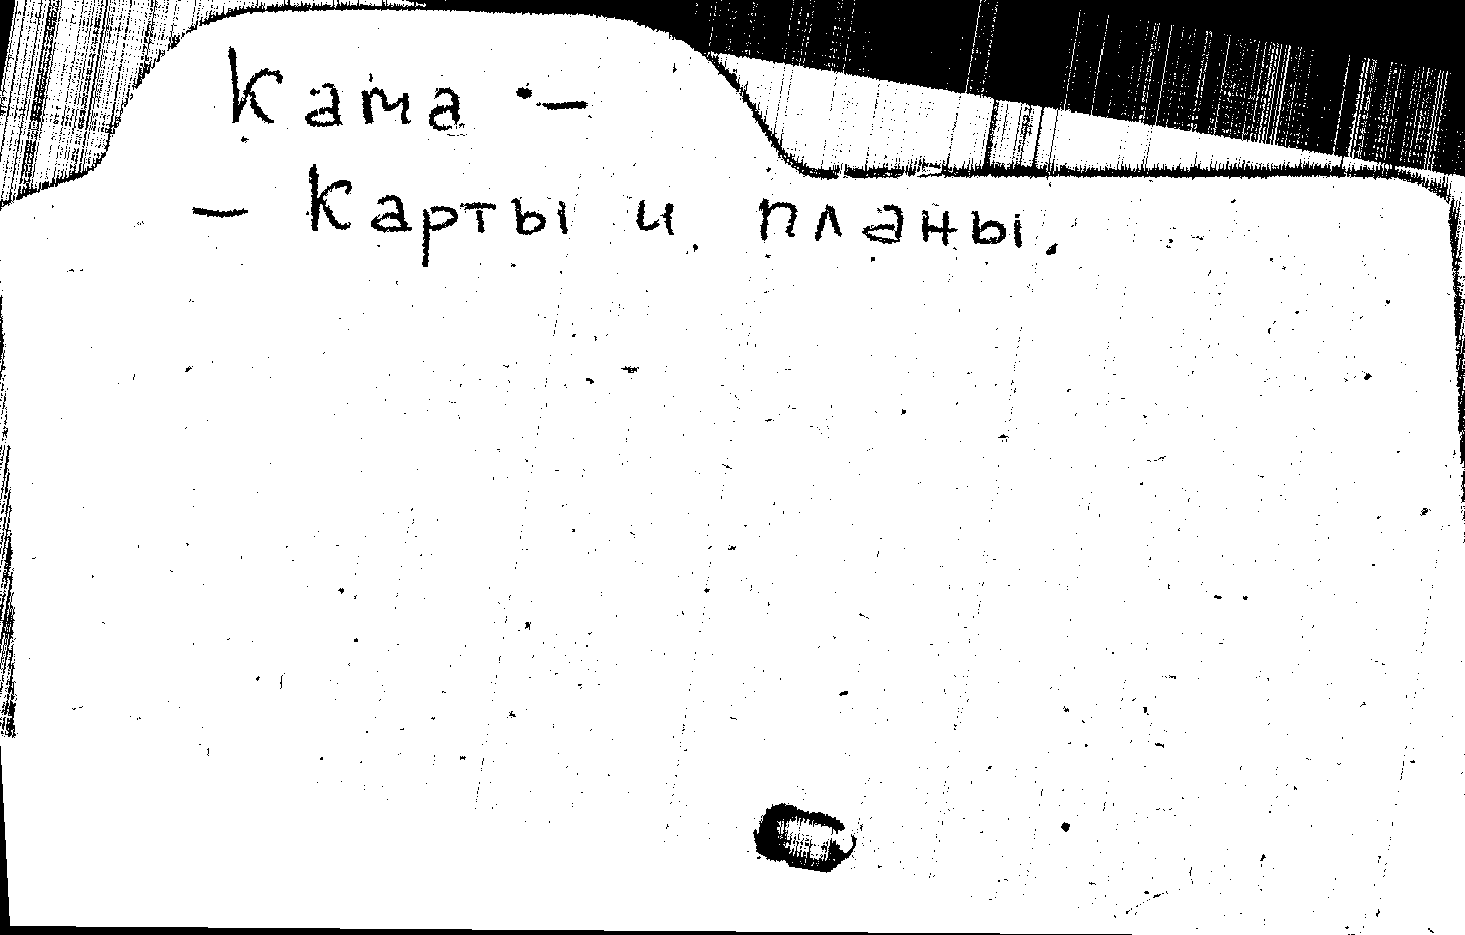 Кама. —
— Карты и планы.